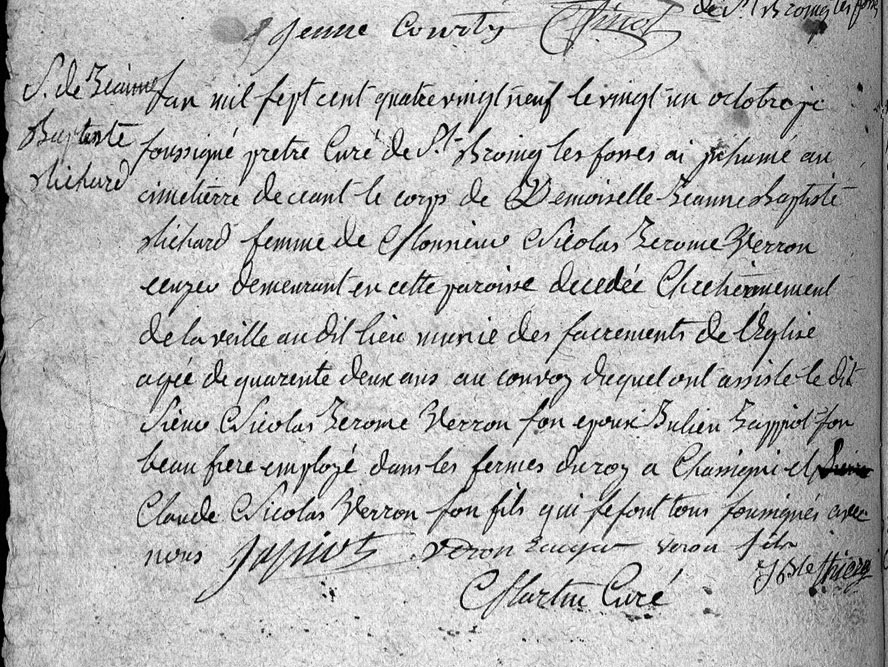 de St Broing les fosses
Jeune Courty
S. de Jeanne
Baptiste
Richard
L'an mil sept cent quatre vingt neuf le vingt un octobre je
soussigné pretre Curé de St Broing les fosses ai inhumé au
cimetierre de ceant le corps de Demoiselle Jeanne Baptiste
Richard femme de Monsieur Nicolas Jerome Verron
demeurant en cette paroisse decedée Chretiennement
de la veille au dit lieu munie des sacrements de l'Eglise
agée de quarente deux ans au convoy duquel ont assisté le dit
Sieur Nicolas Jerome Verron son epoux Julien Jappiot son
beau frere employé dans les fermes du roy a Chassigni et
Claude Nicolas Verron son fils qui se sont tous soussignés avec
nous Japiot veron veron fils
Martin Curé